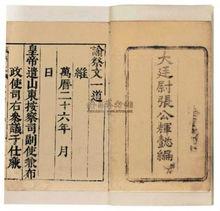 大廷尉張公懿編
諭祭文一道
維
萬曆二十六年 月
日
皇帝遣山東按察司副使兼布
政使司右參議于仕廉